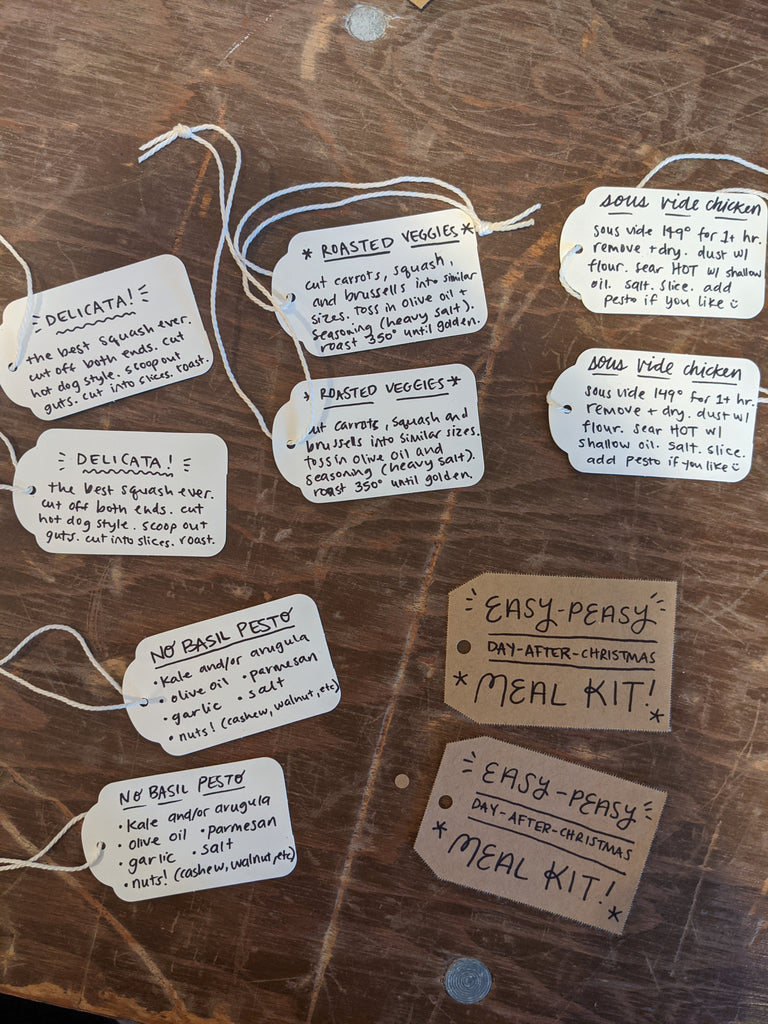 DELICATA!
the best squash ever.
cut off both ends. cut
hot dog style. scoop out
guts. cut into slices. roast.
* ROASTED VEGGIES *
cut carrots, squash,
and brussells into similar
sizes. toss in olive oil +
seasoning (heavy salt).
roast 350° until golden.
sous vide chicken
sous vide 149° for 1+ hr.
remove + dry. dust w/
flour. sear HOT w/ shallow
oil. salt. slice. add
pesto if you like ☺
DELICATA!
the best squash ever.
cut off both ends. cut
hot dog style. scoop out
guts. cut into slices. roast.
* ROASTED VEGGIES *
cut carrots, squash and
brussells into similar sizes.
toss in olive oil and
seasoning (heavy salt).
roast 350° until golden.
sous vide chicken
sous vide 149° for 1+ hr.
remove + dry. dust w/
flour. sear HOT w/
shallow oil. salt. slice.
add pesto if you like ☺
NO BASIL PESTO
• kale and/or arugula
• olive oil • parmesan
• garlic • salt
• nuts! (cashew, walnut, etc)
EASY-PEASY
DAY-AFTER-CHRISTMAS
* MEAL KIT! *
NO BASIL PESTO
• kale and/or arugula
• olive oil • parmesan
• garlic • salt
• nuts! (cashew, walnut, etc)
EASY-PEASY
DAY-AFTER-CHRISTMAS
* MEAL KIT! *